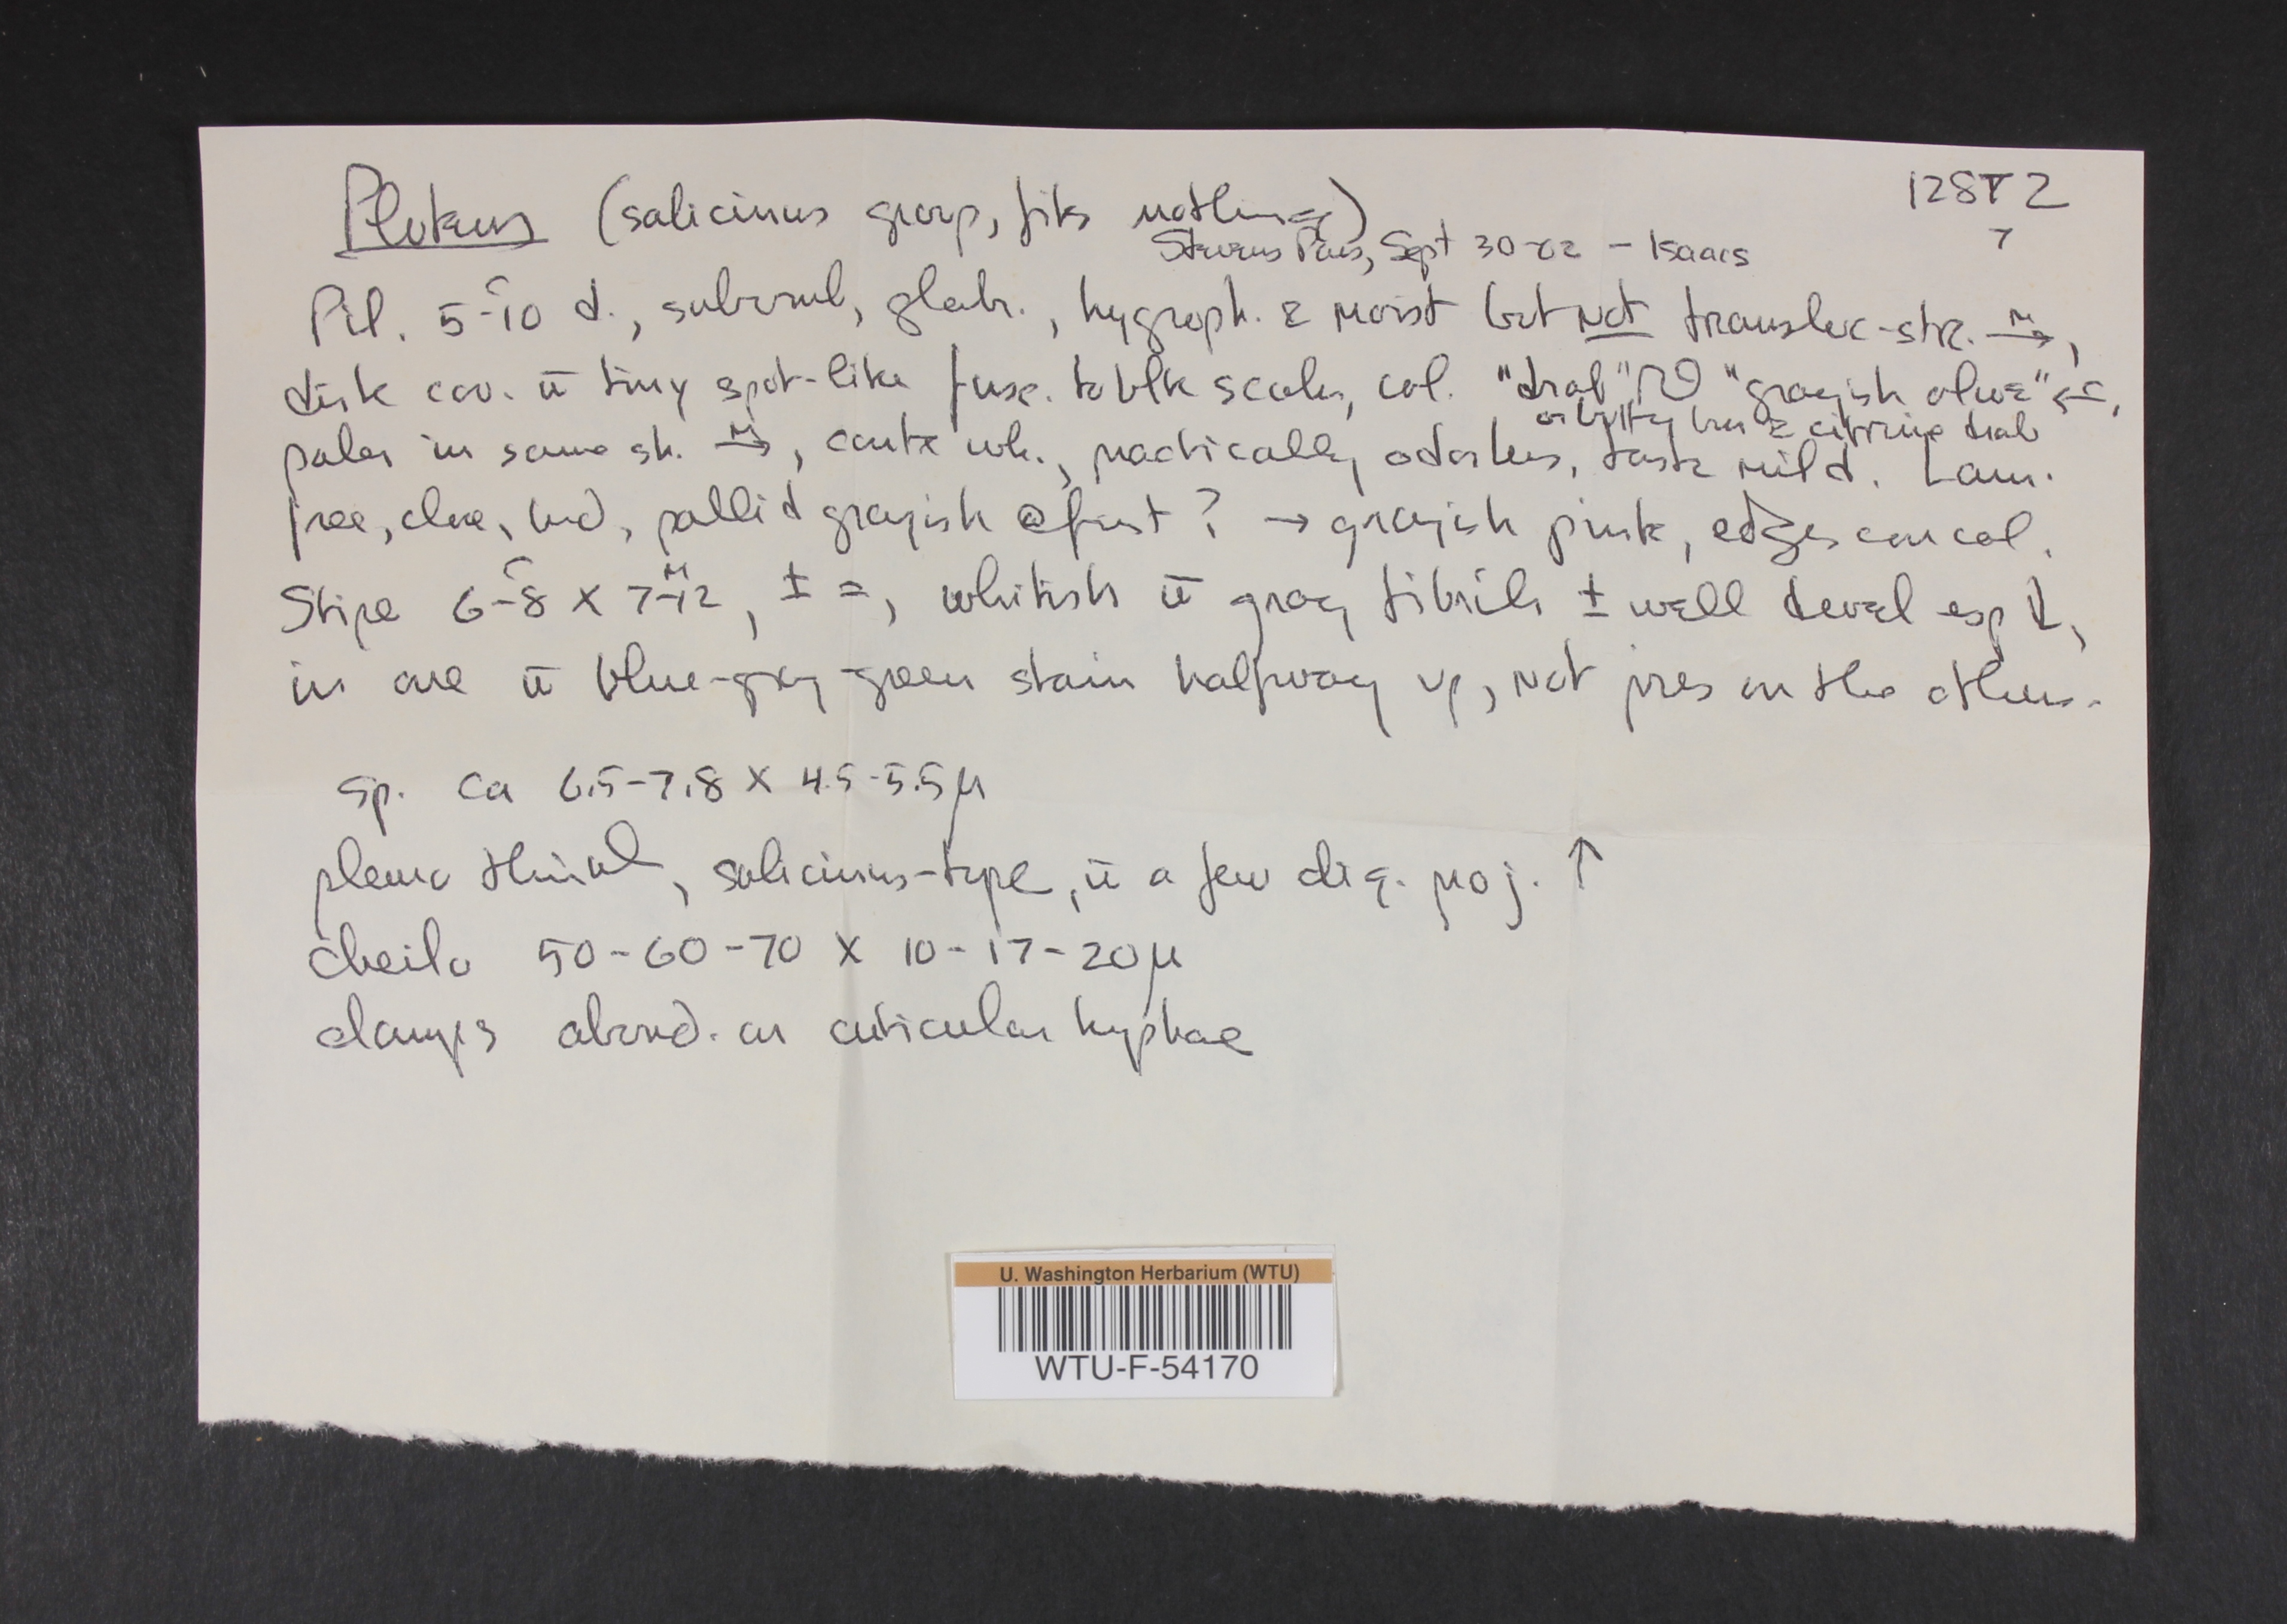 Pluteus (salicinus group, fits nothing) 128T2
7
Stevens Pass, Sept 30-82 - Isaacs
Pil. 5-10 d., subumb, glabr., hygroph. & moist but not transluc-str. M→,
disk cov. c̄ tiny spot-like fusc. to blk scales, col. "drab" "grayish olive" ←C,
or buffy brn & citrine drab
paler in same sh. M→, contx wh., practically odorless, taste mild. Lam.
free, close, brd, pallid grayish @ first? → grayish pink, edges concol.
Stipe 6-8 x 7-12, ± =, whitish c̄ gray fibrils ± well devel esp ↓,
in one c̄ blue-gray-green stain halfway up, not pres on the others.
Sp. ca 6.5-7.8 x 4.5-5.5µ
pleuro thinwl, salicinus-type, c̄ a few dig. proj. ↑
cheilo 50-60-70 x 10-17-20µ
clamps abund. on cuticular hyphae
U. Washington Herbarium (WTU)
WTU-F-54170